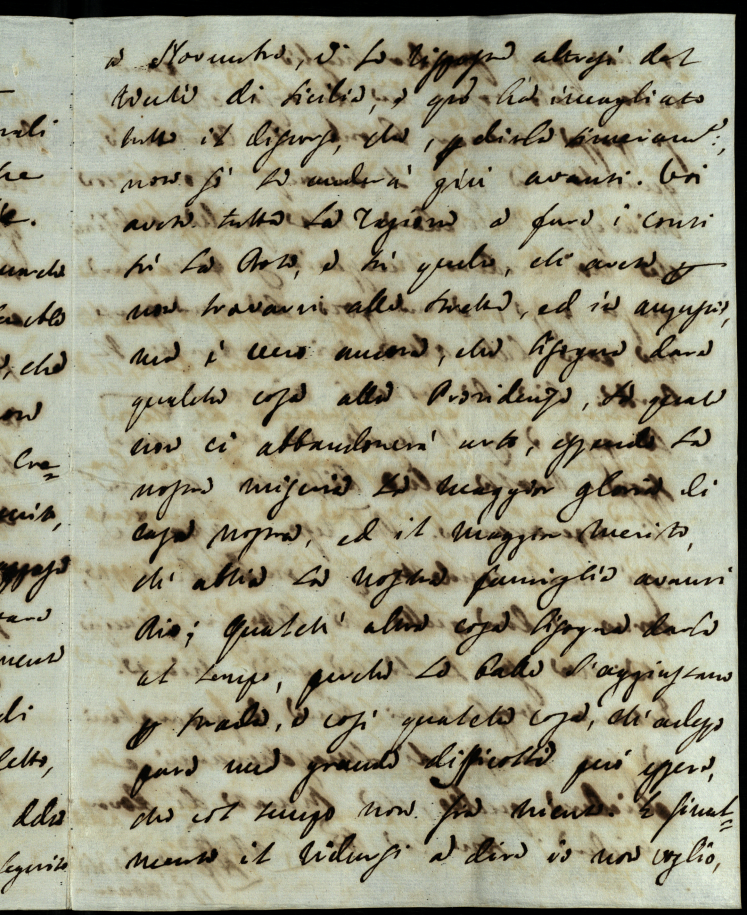 a Novembre, è la risposta altresì del
Viceré di Sicilia, e qto ha incagliato
tutto il discorso, che, p dirla sinceramte:,
non si sa anderà più avanti. Voi
avete tutta la ragione a fare i conti
sù la dote, e sù quello, che avete p
non trovarvi alle strette, ed in angustie,
ma è vero ancora, che bisogna dare
qualche cosa alla Providenza, la quale
non ci abbandonerà certo, essendo la
nostra miseria la maggior gloria di
casa nostra, ed il maggior merito,
ch' abbia la nostra famiglia avanti
Dio; Qualch' altra cosa bisogna darla
al tempo, perche le balle s'aggiustano
p strada, e così qualche cosa, ch' adesso
pare una grande difficoltà può essere,
che col tempo non sia niente. E final=
mente il ridursi a dire io non voglio,
rali
che
Cre=
merito,
tare
mente
di
letto,
della
seguito